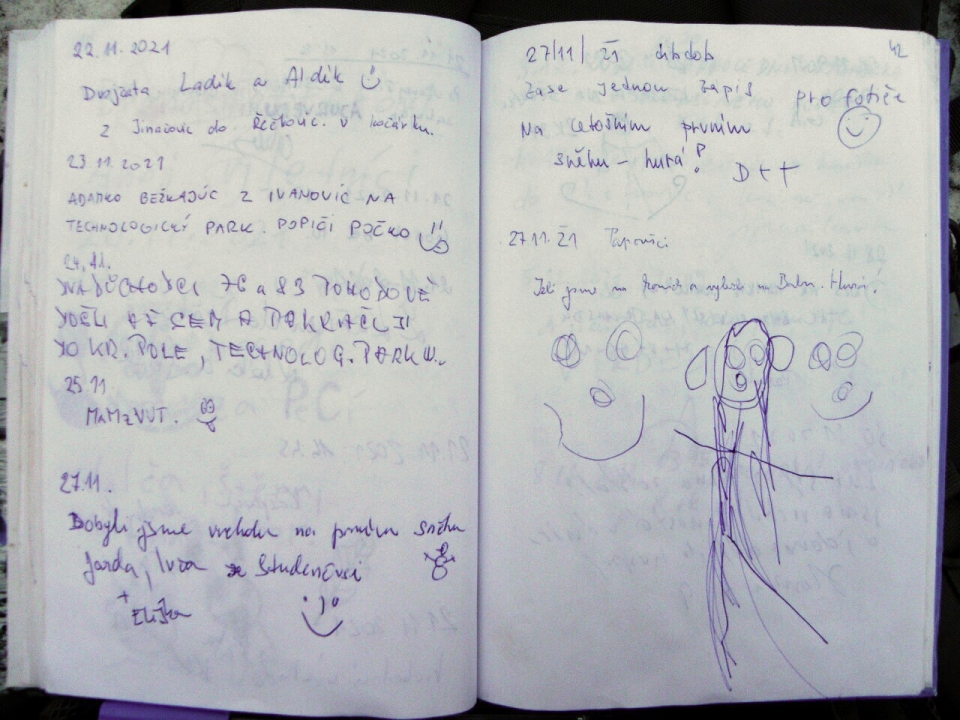 22.11.2021
Dvojčata Ladík a Aldík
z Jinačovic do Řečkovic. v kočárku.
23.11.2021
ADAMKO BEŽKAJÚC Z IVANOVIC NA
TECHNOLOGICKÝ PARK. POPIČI POČKO
24.11.
DVA DŮCHODCI 76 a 83 POHODOVĚ
DOŠLI AŽ SEM A POKRAČUJÍ
DO KR. POLE, TECHNOLOG. PARKU..
25.11
MaMzVUT.
27.11.
Dobyli jsme vrchol na prvním sněhu
Jarda, Iva ze Studenčvsi
+ Eliška
42
27/11/21
zase jednou zápis pro fotiče
Na letošním prvním
sněhu - hurá!
D++
27.11.21
Jeli jsme na